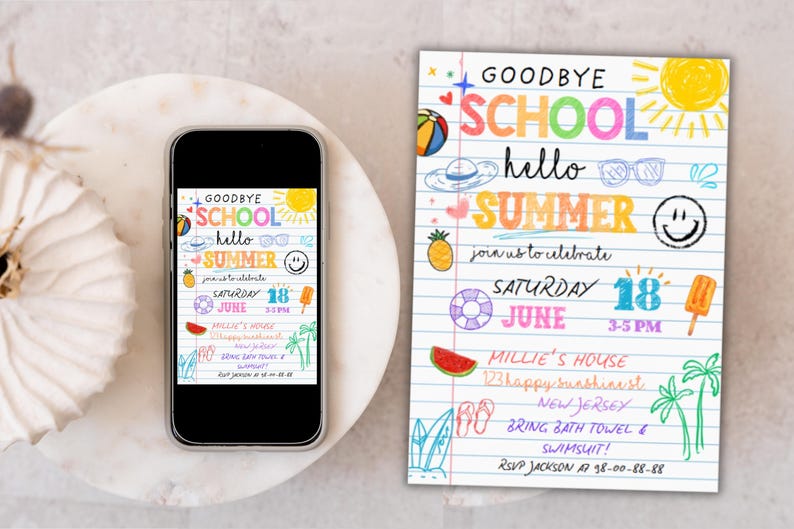 GOODBYE
SCHOOL
hello
SUMMER
join us to celebrate
SATURDAY 18
JUNE 3-5 PM
MILLIE'S HOUSE
123 happy sunshine st
NEW JERSEY
BRING BATH TOWEL &
SWIMSUIT!
RSVP JACKSON AT 98-00-88-88
GOODBYE
SCHOOL
hello
SUMMER
join us to celebrate
SATURDAY 18
JUNE 3-5 PM
MILLIE'S HOUSE
123 happy sunshine st
NEW JERSEY
BRING BATH TOWEL &
SWIMSUIT!
RSVP JACKSON AT 98-00-88-88